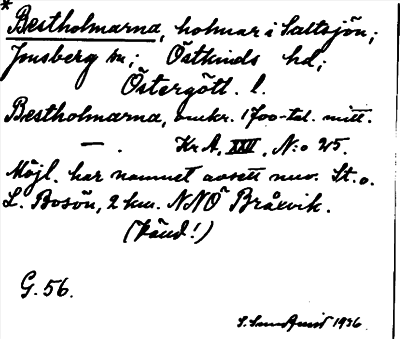 *
Bestholmarna, holmar i Saltsjön;
Jonsberg sn; Östkinds hd;
Östergött. l.
Bestholmarna, omkr. 1700-tal. mitt.
— . Kr A, XXII, N:o 25.
Möjl. har namnet avsett nuv. St. o.
L. Bosön, 2 km. NNÖ Bråxvik.
(känd!)
G. 56.
1936